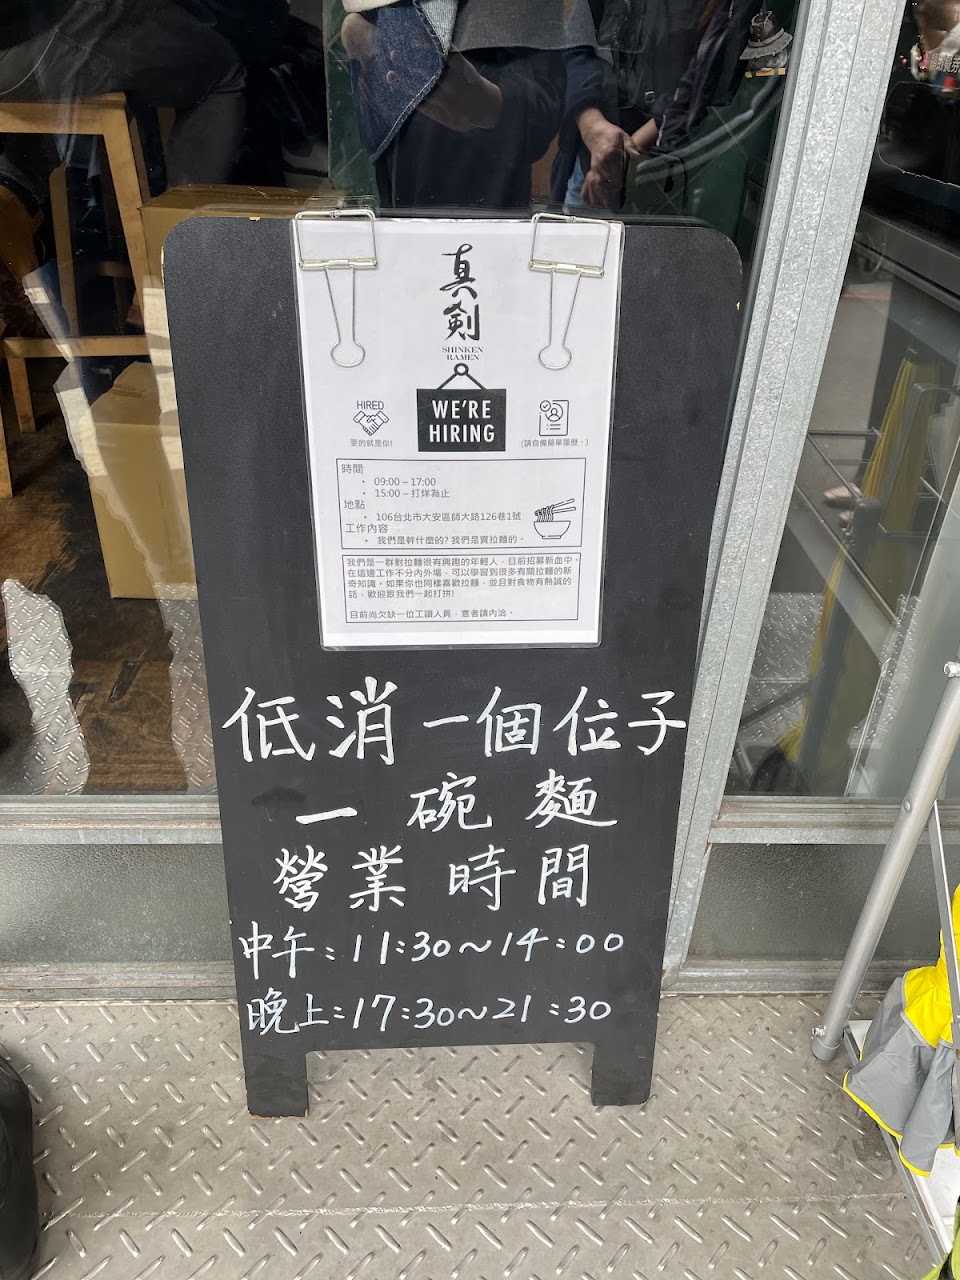 真
剣
SHINKEN
RAMEN
WE'RE
HIRING
HIRED
要的就是你!
(請自備簡單履歷。)
時間
• 09:00 – 17:00
• 15:00 – 打烊為止
地點
• 106台北市大安區師大路126巷1號
工作內容
• 我們是幹什麼的? 我們是賣拉麵的。
我們是一群對拉麵很有興趣的年輕人，目前招募新血中。
在這邊工作不分內外場，可以學習到很多有關拉麵的新
奇知識。如果你也同樣喜歡拉麵，並且對食物有熱誠的
話，歡迎跟我們一起打拼!
目前尚欠缺一位工讀人員，意者請內洽。
低消一個位子
一碗麵
營業時間
中午:11:30~14:00
晚上:17:30~21:30